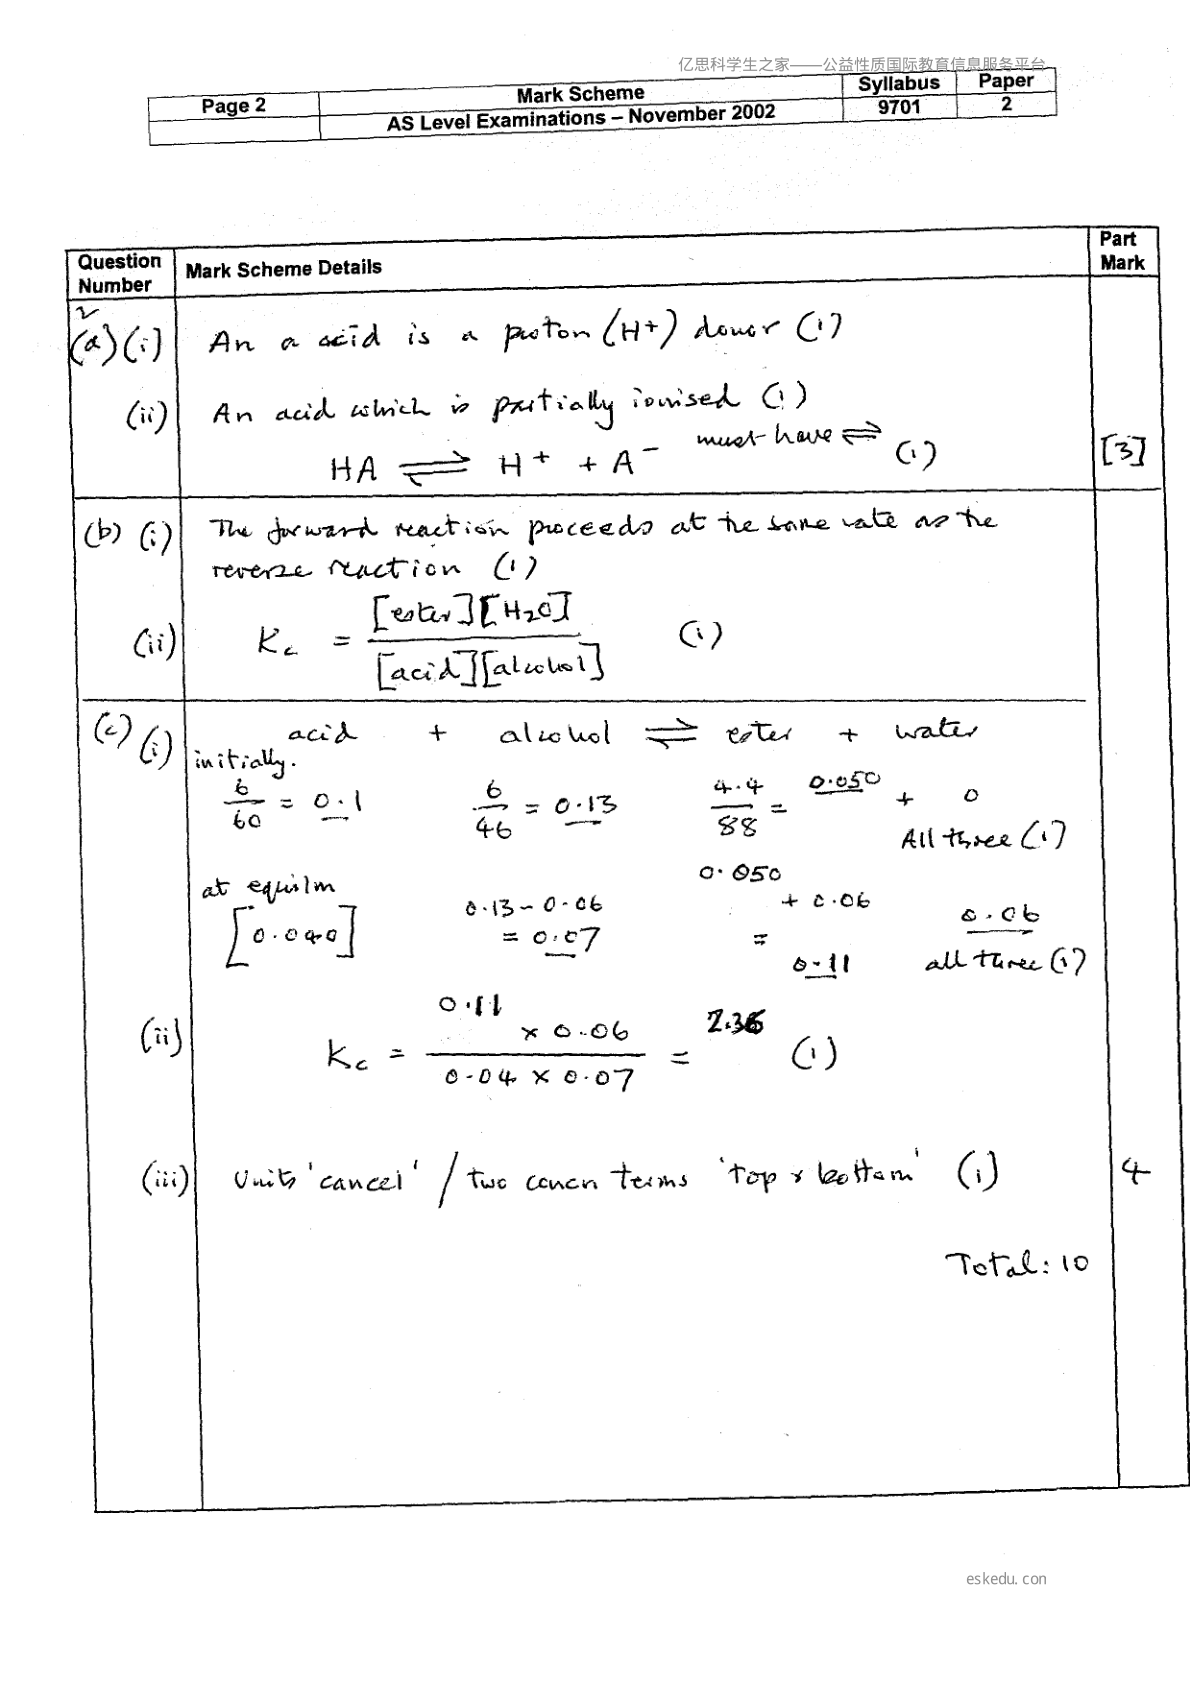 亿思科学生之家——公益性质国际教育信息服务平台
Page 2 Mark Scheme Syllabus Paper
AS Level Examinations – November 2002 9701 2
Question Number Mark Scheme Details Part Mark
2
(a) (i) An a acid is a proton (H+) donor (1)
(ii) An acid which is partially ionised (1)
must have ⇌
HA ⇌ H+ + A− (1) [3]
(b) (i) The forward reaction proceeds at the same rate as the
reverse reaction (1)
(ii) Kc = [ester][H2O] / [acid][alcohol] (1)
(c) (i) acid + alcohol ⇌ ester + water
initially.
6/60 = 0.1 6/46 = 0.13 4.4/88 = 0.050 + 0
All three (1)
at equilm
[0.040] 0.13 – 0.06 = 0.07 0.050 + 0.06 = 0.11 0.06
all three (1)
(ii) Kc = 0.11 × 0.06 / 0.04 × 0.07 = 2.36 (1)
(iii) Units 'cancel' / two concn terms 'top & bottom' (1) 4
Total: 10
eskedu.con